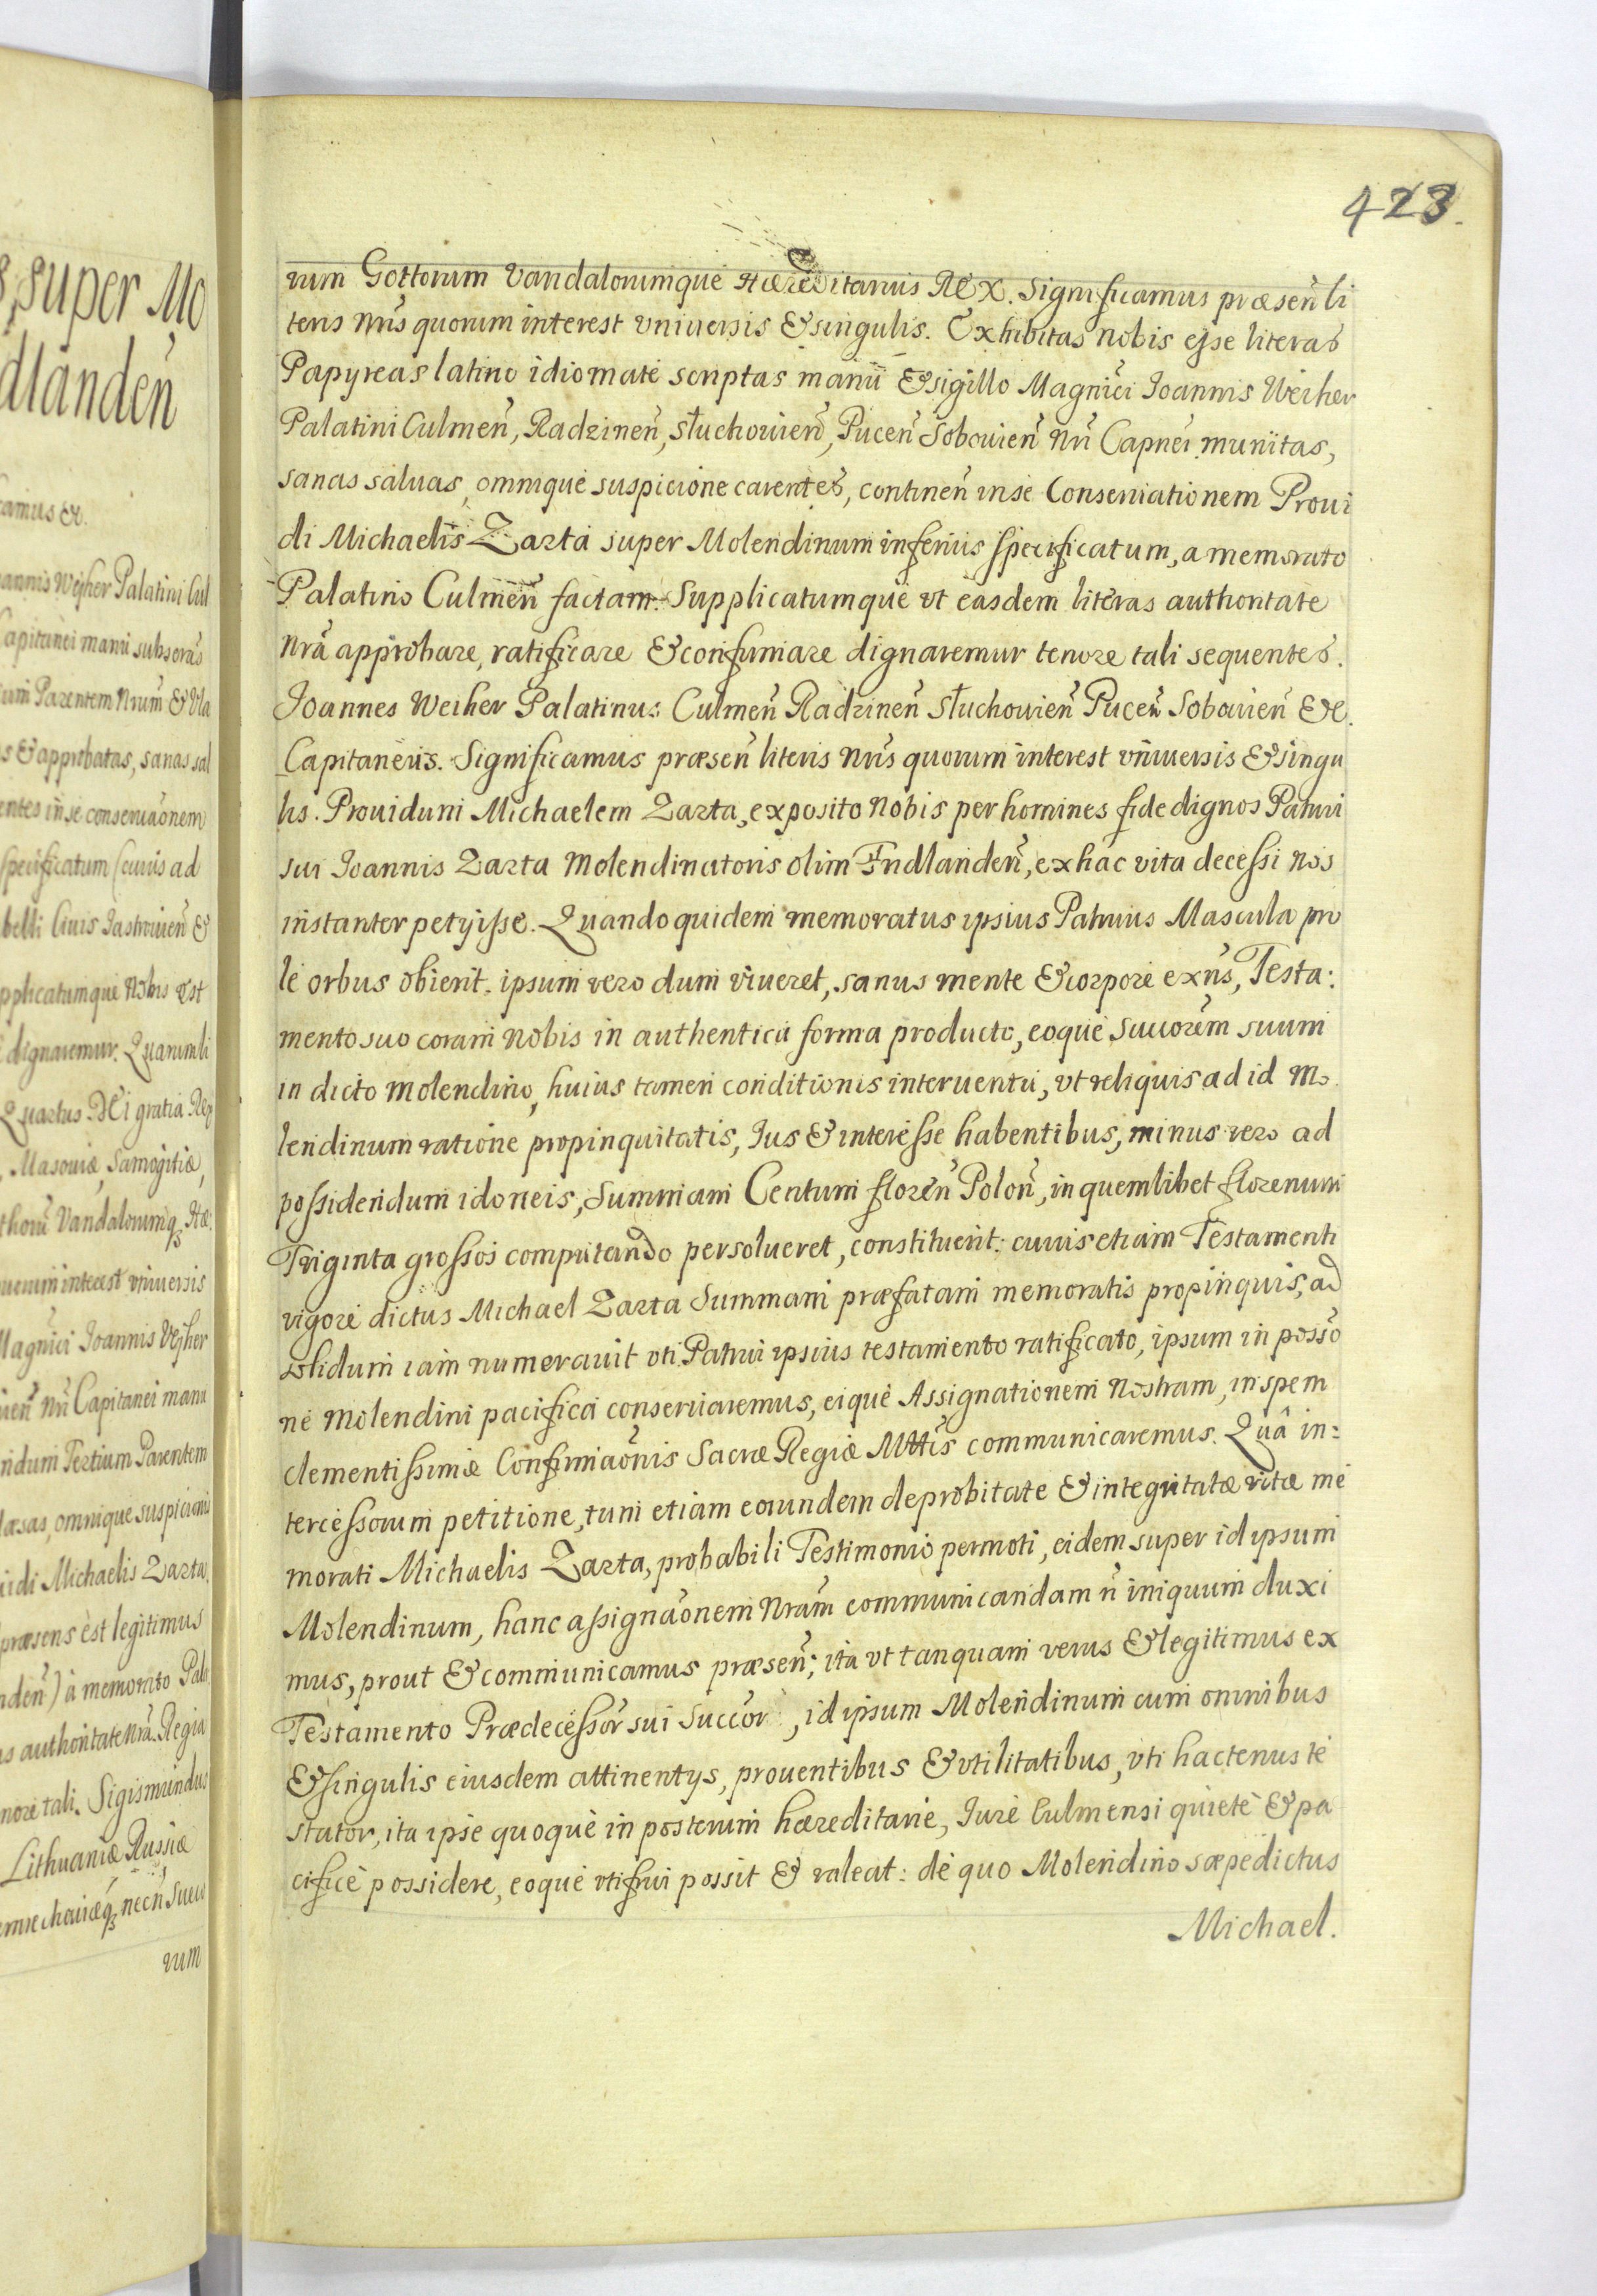 s, super Mo
dlanden̄
camus &.
oannis Wejher Palatini Cul
Capitanei manu subscras
rum Parentem Nrum & Vla
s & approbatas, sanas sal
entes in se conseruãonem
specificatum (cuius ad
belli Ciuis Jastrouien̄ &
pplicatumque Nobis est
dignaremur. Quarum li
Quartus. DEi gratia Rex
Masouiæ, Samogitiæ,
thorũ Vandalorumq₃ Hæ:
uorum interest vniuersis
Magnici Joannis Vejher
uien̄ Nrĩ Capitanei manu
ndum Tertium Parentem
læsas, omnique suspicione
uidi Michaelis Zarta,
præsens est legitimus
nden̄) à memorato Pala
as authoritate Nrã Regia
nore tali. Sigismundus
Lithuaniæ Russiæ
erniechouiæq₃ necñ Sueco
rum
423.
rum Gottorum Vandalorumque Hæreditarius REX. Significamus præsen̄ li
teris Nr̃is quorum interest vniuersis & singulis. Exhibitas Nobis esse literas
Papyreas latino idiomate scriptas manū & sigillo Magnĩci Joannis Weiher
Palatini Culmen̄, Radzinen̄, Słuchouien̄, Pucen̄ Sobouien̄ Nr̃i Capnei munitas,
sanas saluas, omnique suspicione carentes, continen̄ in se Conseruationem Proui
di Michaelis Zarta super Molendinum inferius specificatum, a memorato
Palatino Culmen̄ factam. Supplicatumque vt easdem literas authoritate
Nrã approbare, ratificare & confirmare dignaremur tenore tali sequentes.
Joannes Weiher Palatinus Culmen̄ Radzinen̄ Słuchouien̄ Pucen̄ Sobouien̄ &c.
Capitaneus. Significamus præsen̄ literis Nr̃is quorum interest vniuersis & singu
lis. Prouidum Michaelem Zarta, exposito Nobis per homines fide dignos Patrui
sui Joannis Zarta Molendinatoris olim Fridlanden̄, ex hac vita decessu Nos
instanter petyisse. Quandoquidem memoratus ipsius Patruus Mascula pro
le orbus obierit, ipsum vero dum viueret, sanus mente & corpore exñs, Testa:
mento suo coram Nobis in authentica forma producto, eoque Succorem suum
in dicto Molendino, huius tamen conditionis interuentu, vt reliquis ad id Mo
lendinum ratione propinquitatis, Jus & interesse habentibus, minus vero ad
possidendum idoneis, Summam Centum floren̄ Polon̄, in quemlibet florenum
Triginta grossos computando persolueret, constituerit: cuius etiam Testamenti
vigore dictus Michael Zarta Summam præfatam memoratis propinquis, ad
solidum iam numerauit vti Patrui ipsius testamento ratificato, ipsum in possõ
ne Molendini pacifica conseruaremus, eique Assignationem Nostram, in spem
clementissimæ Confirmaõnis Sacræ Regiæ Mttis communicaremus. Quâ in:
tercessorum petitione, tum etiam eorundem de probitate & integritatæ vitæ me
morati Michaelis Zarta, probabili Testimonio permoti, eidem super id ipsum
Molendinum, hanc assignaõnem Nram communicandam ñ iniquum duxi
mus, prout & communicamus præsen̄; ita vt tanquam verus & legitimus ex
Testamento Prædecessor̃ sui Succor, id ipsum Molendinum cum omnibus
& singulis eiusdem attinentys, prouentibus & vtilitatibus, vti hactenus te
stator, ita ipse quoque in posterum hæreditarie, Jure Culmensi quietè & pa
cificè possidere, eoque vtifrui possit & valeat: de quo Molendino sæpedictus
Michael.